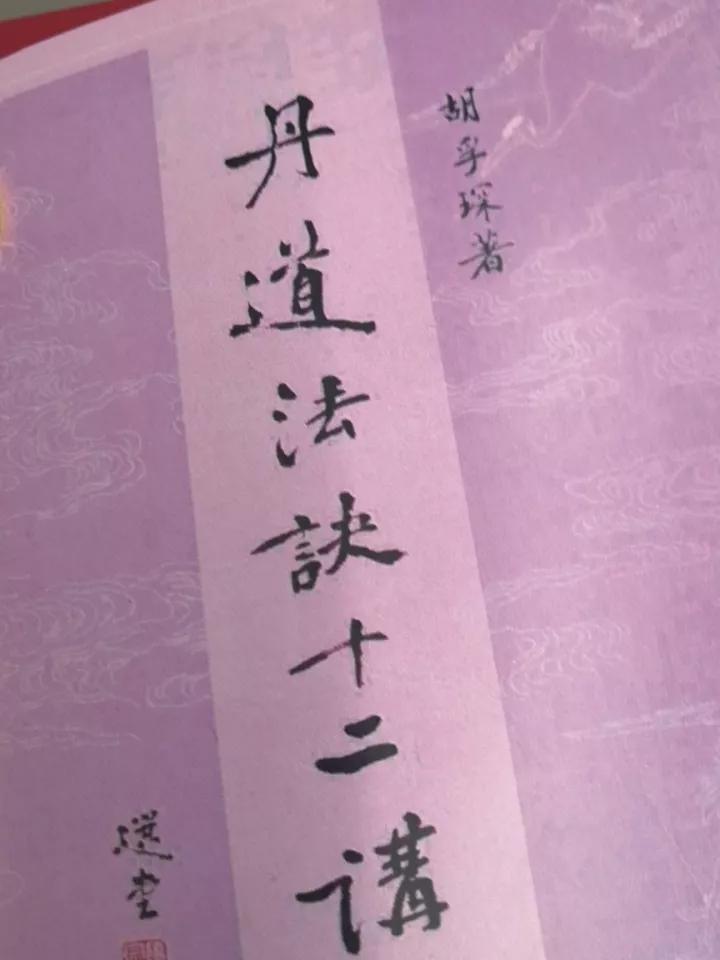 胡孚琛著
丹道法訣十二講
選堂